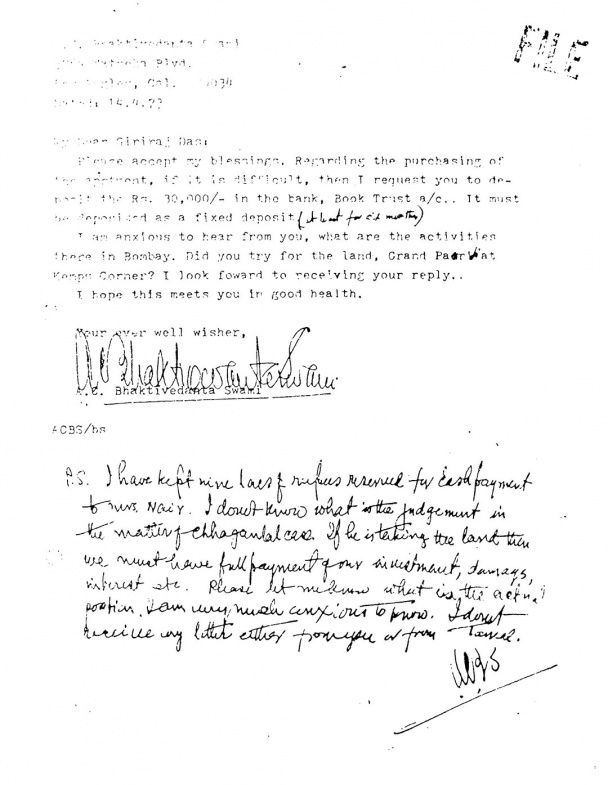 FILE
Bhaktivedanta Swami
Watseka Blvd.
Cal.
14.4.73
My Dear Giriraj Das:
Please accept my blessings. Regarding the purchasing of
the apptment, if it is difficult, then I request you to de-
posit the Rs. 30,000/- in the bank, Book Trust a/c.. It must
be deposited as a fixed deposit (at least for six months)
I am anxious to hear from you, what are the activities
there in Bombay. Did you try for the land, Grand at
Kemps Corner? I look foward to receiving your reply..
I hope this meets you in good health.
Your ever well wisher,
A.C. Bhaktivedanta Swami
A.C. Bhaktivedanta Swami
ACBS/hs
P.S. I have kept nine lacs of rupees reserved for cash payment
to mrs. Nair. I donot know what is the judgement in
the matter of Chhaganlal case. If he is taking the land then
we must have full payment of our investment, damage,
interest etc. Please let me know what is the actual
position. I am very much anxious to know. I donot
receive any letter either from you or from Tamal.
ACBS